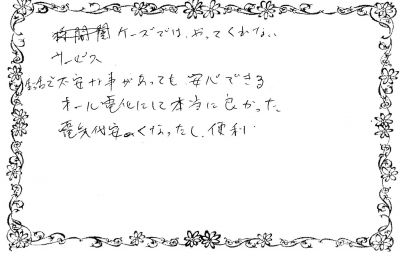 ケーズでは、やってくれない
サービス
不安な事があっても安心できる
オール電化にして本当に良かった
電気代安くなったし、便利